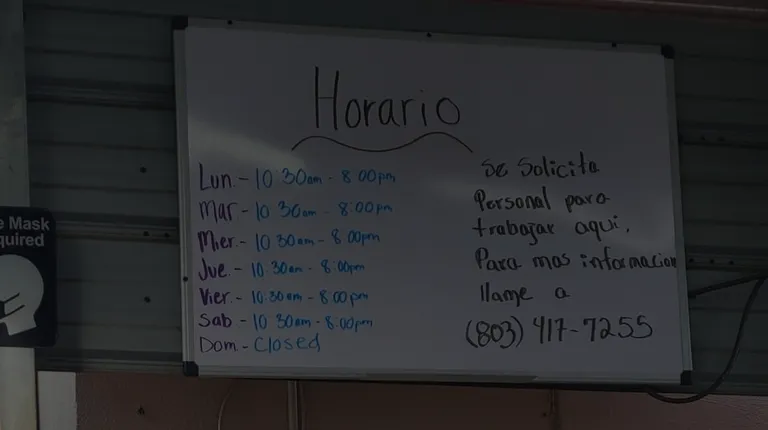 Horario
Lun. - 10:30am - 8:00pm
Mar - 10:30am - 8:00pm
Mier. - 10:30am - 8:00pm
Jue. - 10:30am - 8:00pm
Vier. - 10:30am - 8:00pm
Sab - 10:30am - 8:00pm
Dom - Closed
Se Solicita
Personal para
trabajar aqui.
Para mas informacion
llame a
(803) 417-7255
Mask
quired